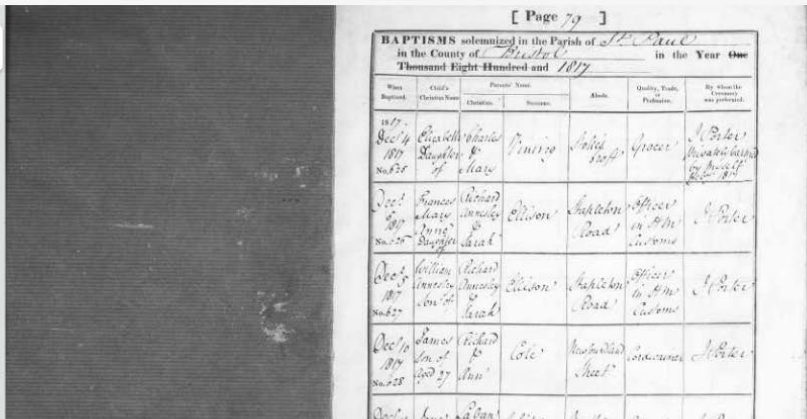 [ Page 79 ]
BAPTISMS solemnized in the Parish of St. Paul
in the County of Bristol in the Year One
Thousand Eight Hundred and 1817
When Baptized.
Child's Christian Name.
Parents' Name.
Christian.
Surname.
Abode.
Quality, Trade, or Profession.
By whom the Ceremony was performed.
1817.
Decr 4
1817
No. 625
Elizabeth
Daughter
of
Charles
&
Mary
Vining
Stokes
Croft
Grocer
J Porter
Privately
by myself
1817
Decr
5
1817
No. 626
Frances
Mary
Anne
Daughter
of
Richard
Annesley
&
Sarah
Ellison
Stapleton
Road
Officer
in H M
Customs
J Porter
Decr
5
1817
No. 627
William
Annesley
Son of
Richard
Annesley
&
Sarah
Ellison
Stapleton
Road
Officer
in H M
Customs
J Porter
Decr 10
1817
No. 628
James
Son of
Aged 27
Richard
&
Ann
Cole
Newfoundland
Street
Cordwainer
J Porter